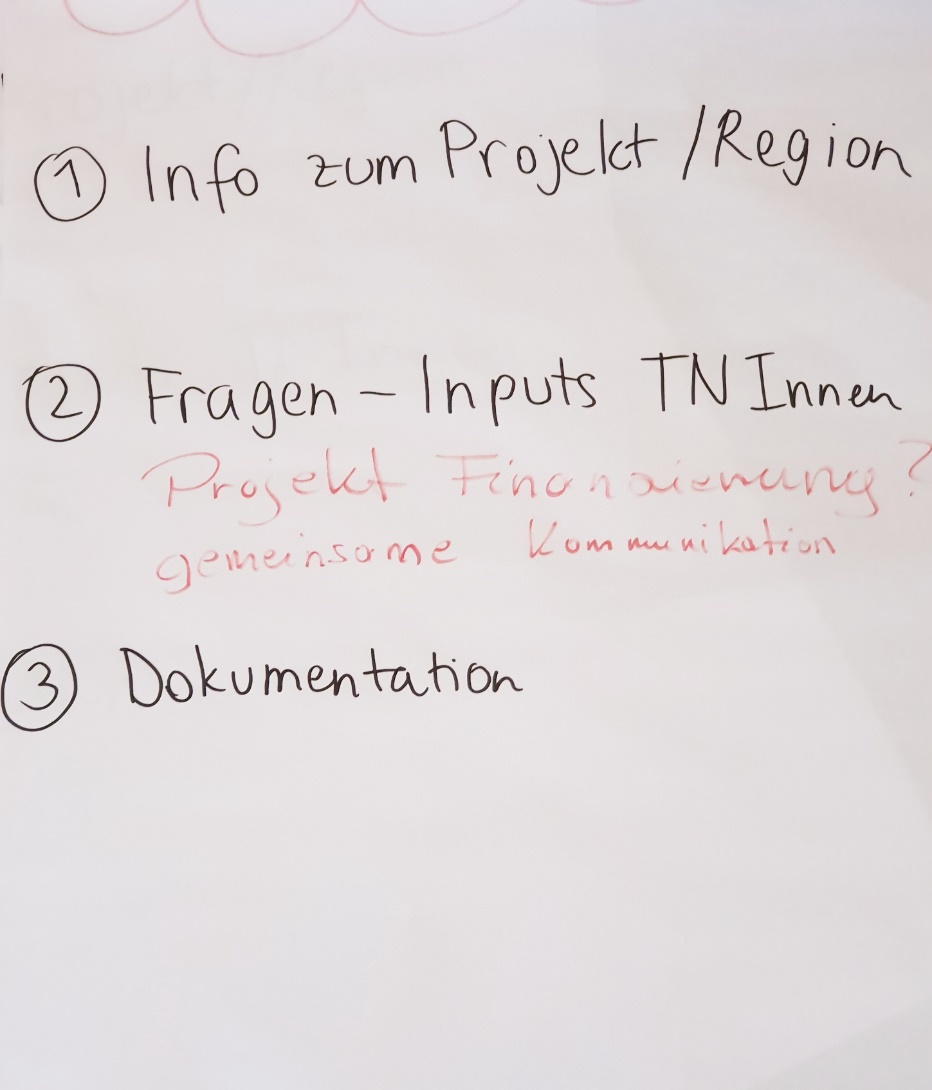 ① Info zum Projekt / Region
② Fragen – Inputs TN Innen
Projekt Finanzierung?
gemeinsame Kommunikation
③ Dokumentation